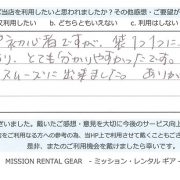 ご当店を利用したいと思われましたか？その他感想・ご要望が
又利用したい b. どちらともいえない c. 利用はしない
初心者ですが、袋1つ1つに
り、とても分かりやすかったです。
スムーズに出来ました。あり
ざいました。戴いたご感想・意見を大切に今後のサービス向上
なる方への参考の為、当HP上で利用させて戴くこともござ
是非、またのご利用機会を戴けましたら幸いです。
MISSION RENTAL GEAR - ミッション・レンタル ギア -